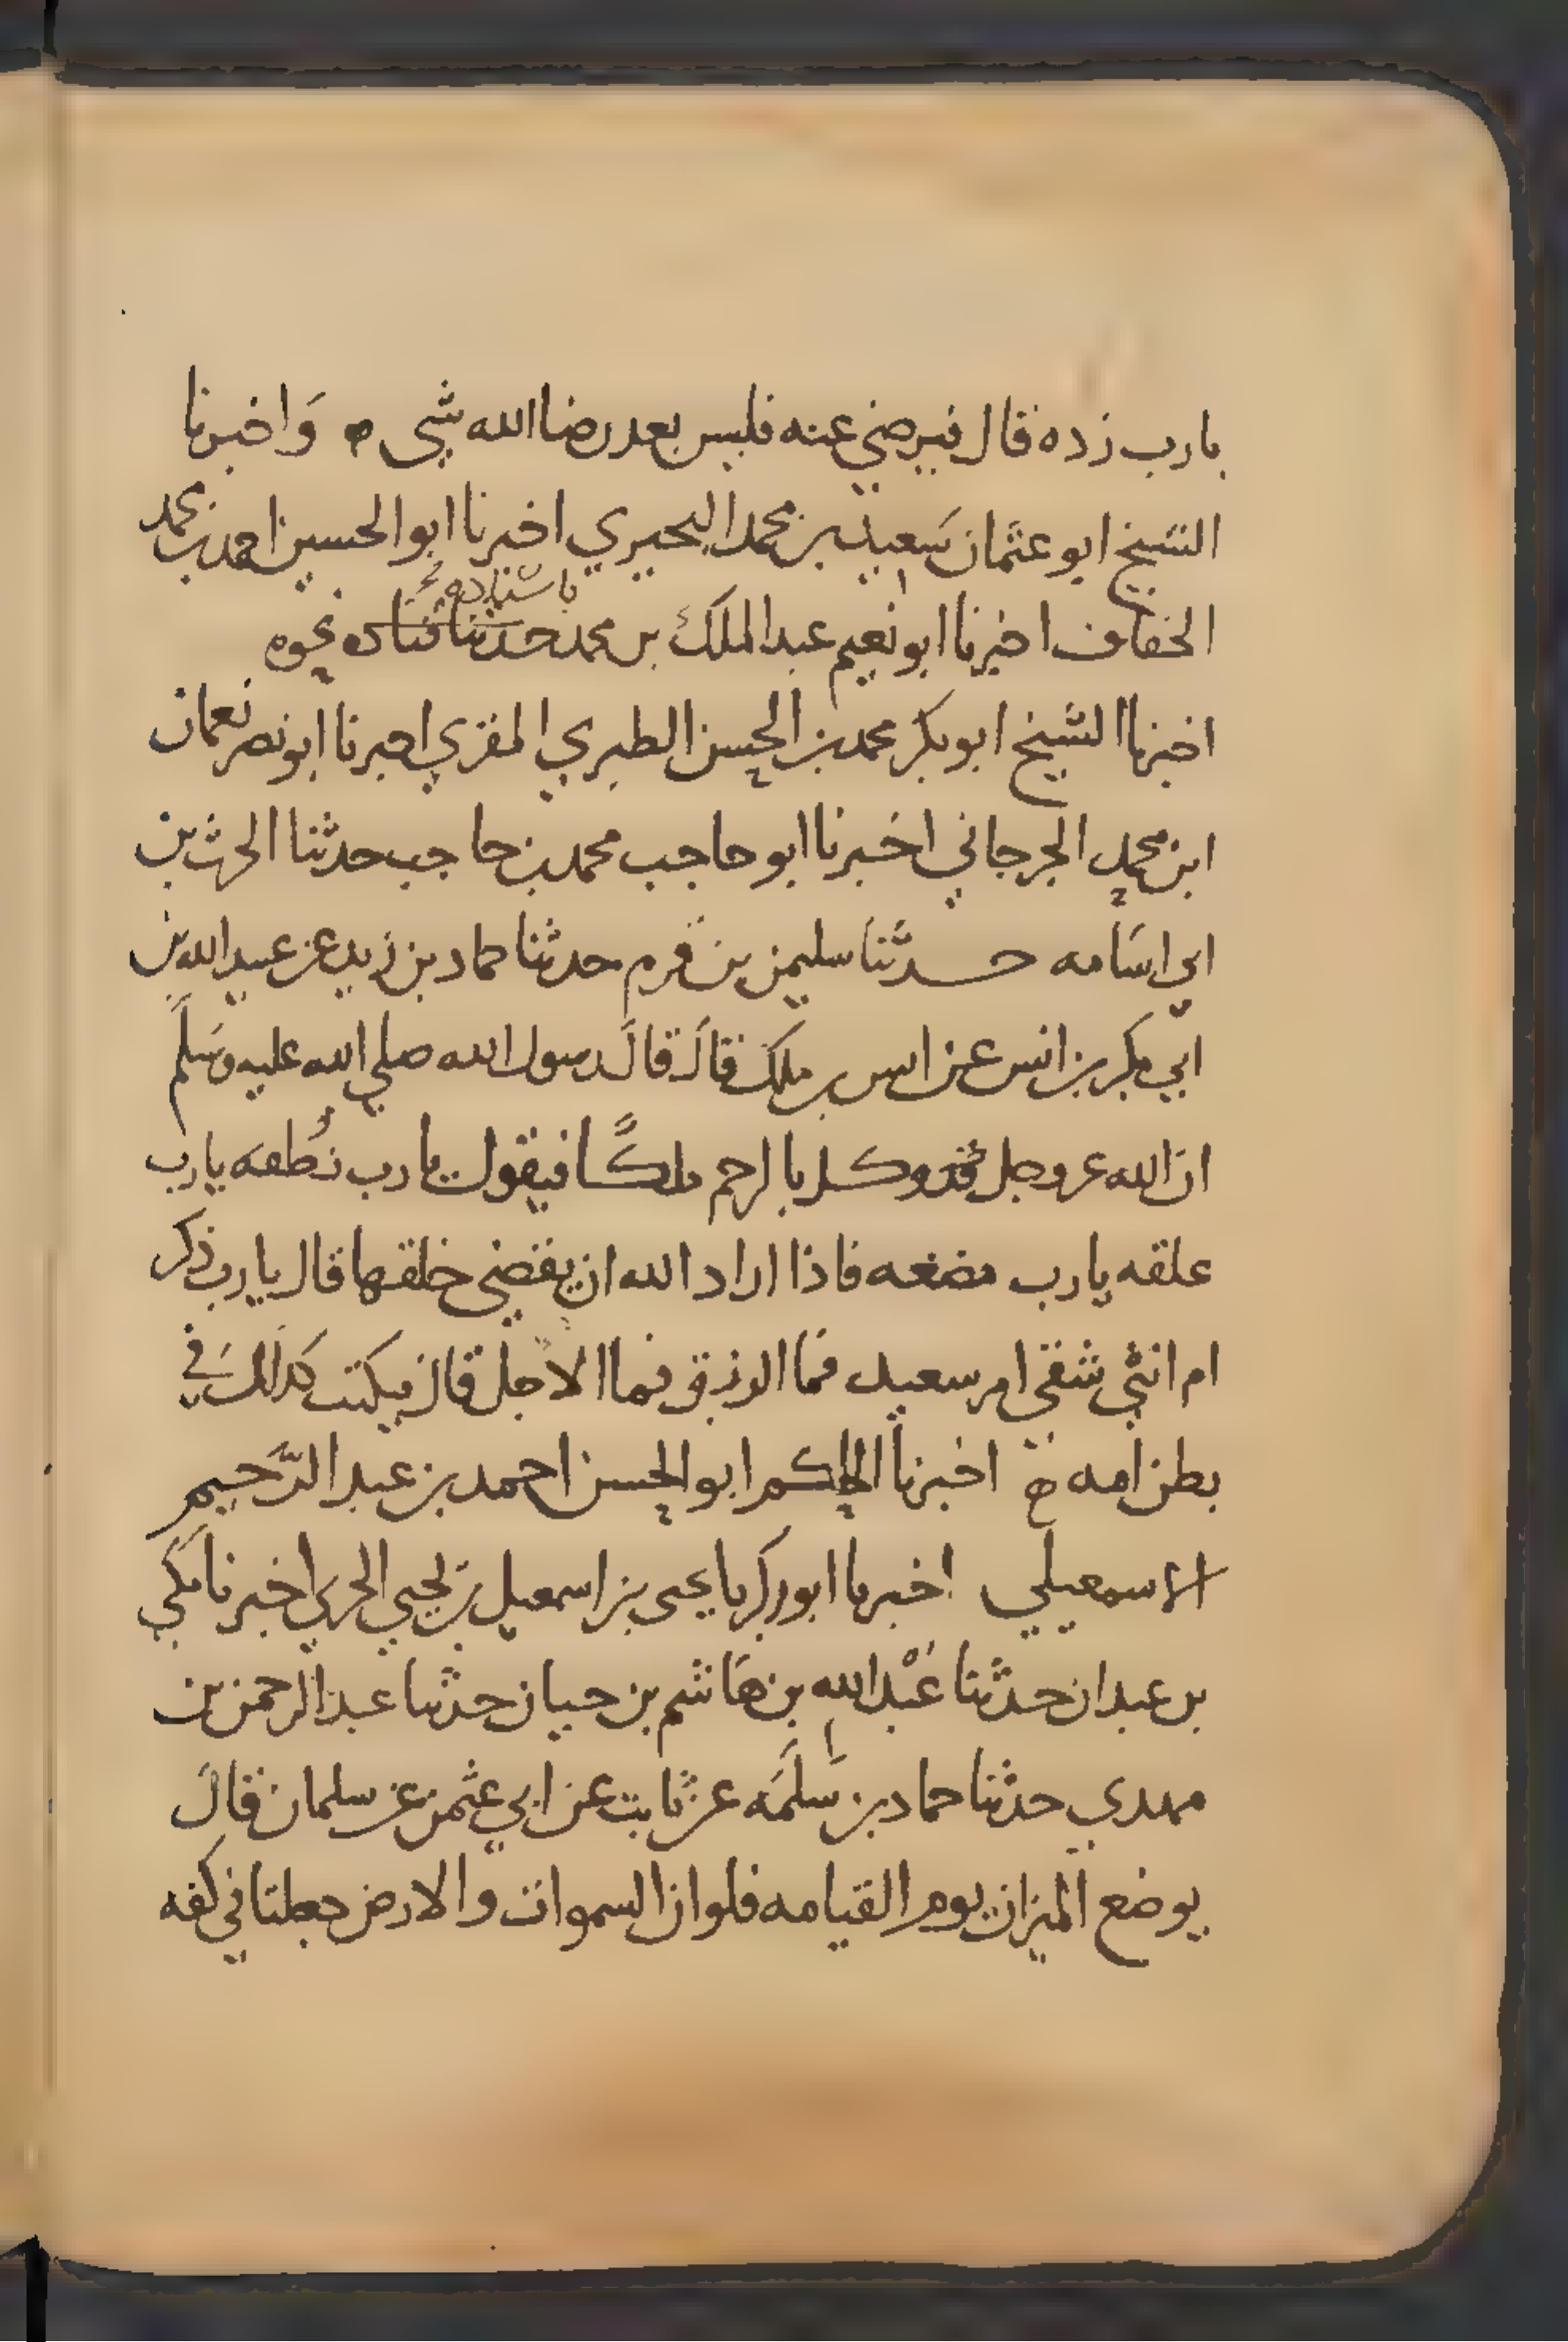 يارب زده قال فيرضي عنه فليس بعد رضا الله شي ه وَاخبرنا
الشيخ ابو عثمان سَعيد بن محمد البحيري اخبرنا ابو الحسين احمد بن محمد
الخفاف اخبرنا ابو نعيم عبد الملك بن محمد حدثنا قتاده نحوه
اخبرنا الشيخ ابو بكر محمد بن الحسن الطبري المقري اخبرنا ابو نصر نعمان
ابن محمد الجرجاني اخبرنا ابو حاجب محمد بن حاجب حدثنا الحرث بن
ابي اسَامه حدثنا سليمن بن قرم حدثنا حماد بن زيد عن عبيد الله بن
ابي بكر بن انس عن انس بن ملك قالَ قالَ رسول الله صلي الله عليه وسَلَّم
ان الله عز وجل قد وكل بالرحم ملكًا فيقول يارب نُطفه يارب
علقه يارب مضغه فاذا اراد الله ان يقضي خلقها قال يارب ذكر
ام انثي شقي ام سعيد فما الرزق فما الاجل قال فيكتب كذلك في
بطن امه اخبرنا الحاكم ابو الحسن احمد بن عبد الرَّحيم
الاسمعيلي اخبرنا ابو زكريا يحيى بن اسمعيل بن يحيي الحربي اخبرنا مكي
بن عبدان حدثنا عَبْد الله بن هَاشم بن حيان حدثنا عبد الرحمن بن
مهدي حدثنا حماد بن سَلَمَه عن ثابت عن ابي عثمن عن سلمان قال
يوضع الميزان يوم القيامه فلو ان السموات والارض جعلتا في كفه